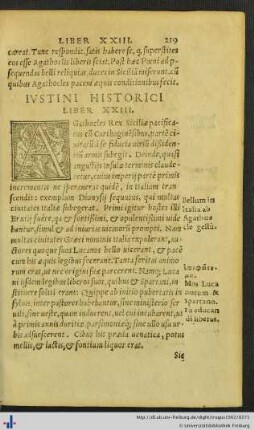 LIBER XXIII. 219
careat. Tunc respondit, satis habere se, q superstites
eos esse Agathoclis liberis sciat. Post hæc Pœni ad p
sequendas belli reliquias, duces in Siciliā miserunt, cū
quibus Agathocles pacem æquis conditionibus fecit.
IVSTINI HISTORICI
LIBER XXIII.
Agathocles Rex Siciliæ pacifica
tus cū Carthaginēsibus, partē ci
uitatū à se fiducia viriū dissiden
tiū armis subegit. Deinde, quasi
angustijs insulæ terminis claude
retur, cuius imperij partē primis
incrementis ne sperauerat quidē, in Italiam tran
scendit: exemplum Dionysij sequutus, qui multas
ciuitates Italiæ subegerat. Primi igitur hostes illi
Brutij fuere, qa et fortissimi, & opulentissimi vide
bantur, simul & ad iniurias vicinorū prompti. Nam
multas ciuitates Græci nominis Italia expulerant, au
ctores quoque suos Lucanos bello vicerant, & pacē
cum his æquis legibus fecerant. Tanta feritas animo
rum erat, ut nec origini suæ parcerent. Namq; Luca
ni ijsdem legibus liberos suos, quibus & Spartani, in
stituere soliti erant: Quippe ab initio pubertatis in
syluis, inter pastores habebantur, sine ministerio ser
uili, sine veste, quam induerent, vel cui incubarent, ut
à primis annis duritiæ, parsimoniæq; sine ullo usu ur
bis adsuescerent. Cibus his præda venatica, potus
mellis, & lactis, & fontium liquor erat.
Sic
Bellum in
Italia ab
Agathocle
gestū.
Mos Luca
norum &
Spartano.
in educan
dis liberis.
© Universitätsbibliothek Freiburg